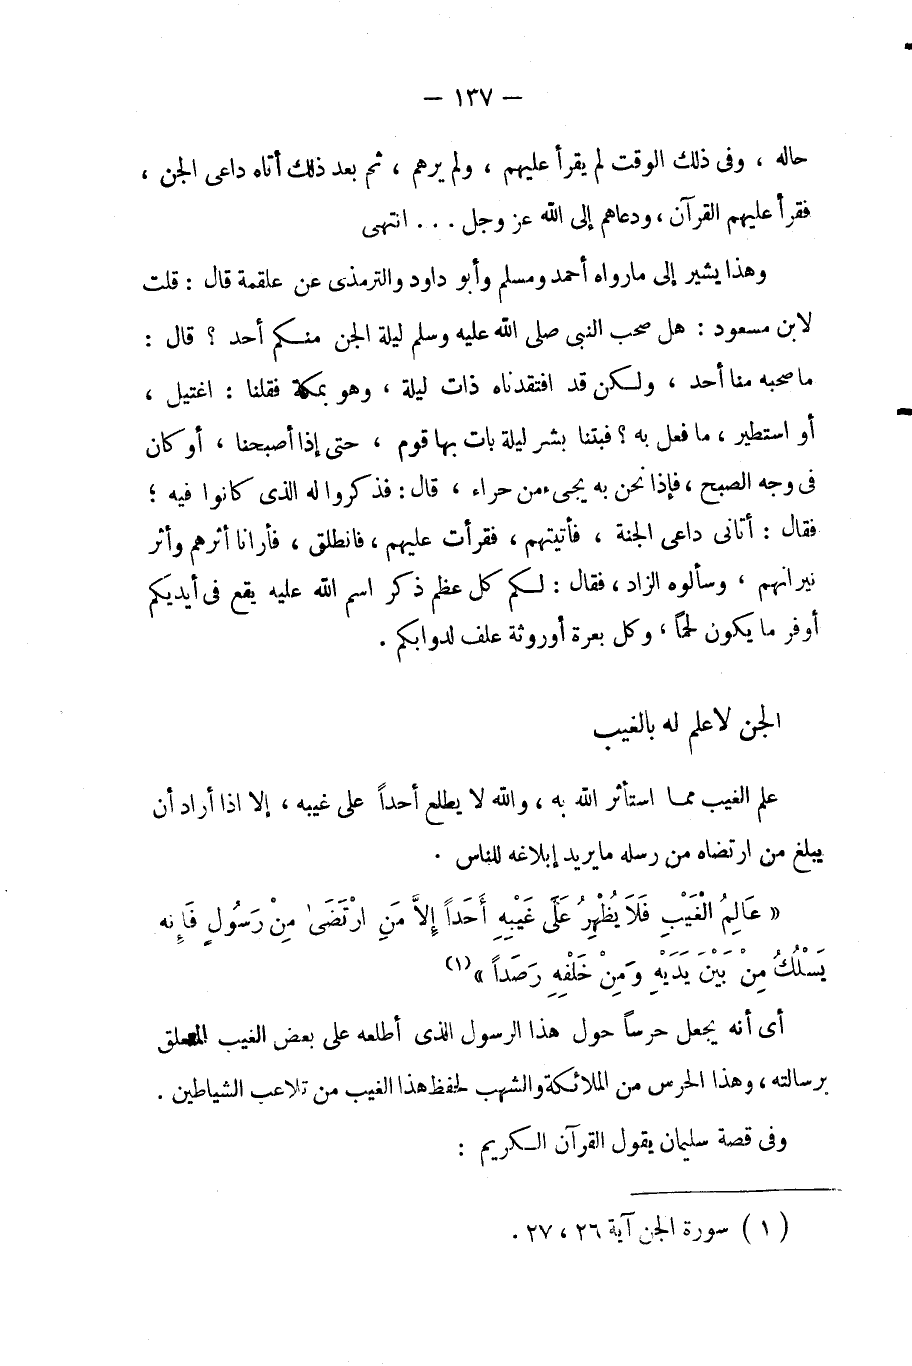 — ١٣٧ —
حاله ، وفى ذلك الوقت لم يقرأ عليهم ، ولم يرهم ، ثم بعد ذلك أتاه داعى الجن ،
فقرأ عليهم القرآن ، ودعاهم إلى الله عز وجل . . . انتهى
وهذا يشير إلى مارواه أحمد ومسلم وأبو داود والترمذى عن علقمة قال : قلت
لابن مسعود : هل صحب النبى صلى الله عليه وسلم ليلة الجن منكم أحد ؟ قال :
ماصحبه منا أحد ، ولكن قد افتقدناه ذات ليلة ، وهو بمكة فقلنا : اغتيل ،
أو استطير ، ما فعل به ؟ فبتنا بشر ليلة بات بها قوم ، حتى إذا أصبحنا ، أو كان
فى وجه الصبح ، فإذا نحن به يجىء من حراء ، قال : فذكروا له الذى كانوا فيه ؛
فقال : أتانى داعى الجنة ، فأتيتهم ، فقرأت عليهم ، فانطلق ، فأرانا أثرهم وأثر
نيرانهم ، وسألوه الزاد ، فقال : لكم كل عظم ذكر اسم الله عليه يقع فى أيديكم
أوفر ما يكون لحماً ، وكل بعرة أوروثة علف لدوابكم .
الجن لا علم له بالغيب
علم الغيب مما استأثر الله به ، والله لا يطلع أحداً على غيبه ، إلا اذا أراد أن
يبلغ من ارتضاه من رسله مايريد إبلاغه للناس .
« عَالِمُ الْغَيْبِ فَلَا يُظْهِرُ عَلَى غَيْبِهِ أَحَداً إِلاَّ مَنِ ارْتَضَىٰ مِنْ رَسُولٍ فَإِنه
يَسْلُكُ مِنْ بَيْنَ يَدَيْهِ وَمِنْ خَلْفِهِ رَصَداً » (١)
أى أنه يجعل حرساً حول هذا الرسول الذى أطلعه على بعض الغيب المتعلق
برسالته ، وهذا الحرس من الملائكة والشهب لحفظ هذا الغيب من تلاعب الشياطين .
وفى قصة سليمان يقول القرآن الكريم :
( ١ ) سورة الجن آية ٢٦ ، ٢٧ .